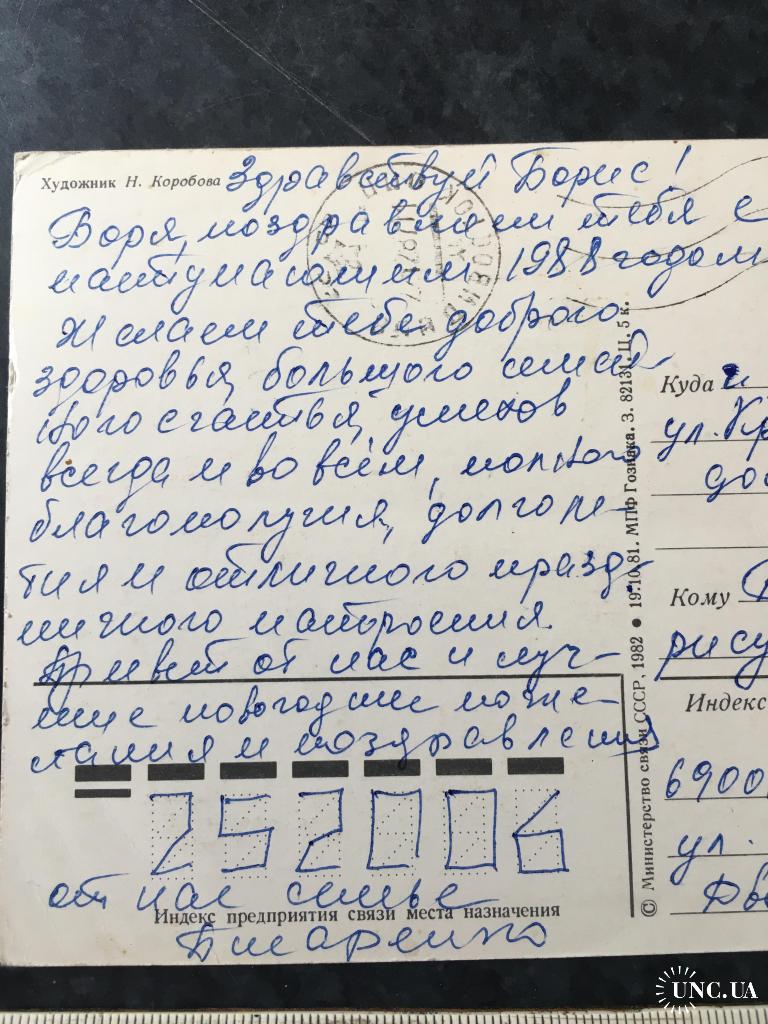 Художник Н. Коробова Здравствуй Борис!
Боря, поздравляем тебя с
наступающим 1988 годом
Желаем тебе доброго
здоровья, большого семей-
ного счастья, успехов
всегда и во всём, полного
благополучия, долголе-
тия и отличного празд-
ничного настроения.
Привет от нас и луч-
шие новогодние поже-
лания и поздравления
252006
от нас семье
Индекс предприятия связи места назначения
© Министерство связи СССР, 1982 • 19.10.81. МПФ Гознака. З. 82131. Ц. 5 к.
Куда
ул. Кр
Кому
рису
Индекс
6900
ул.
UNC.UA